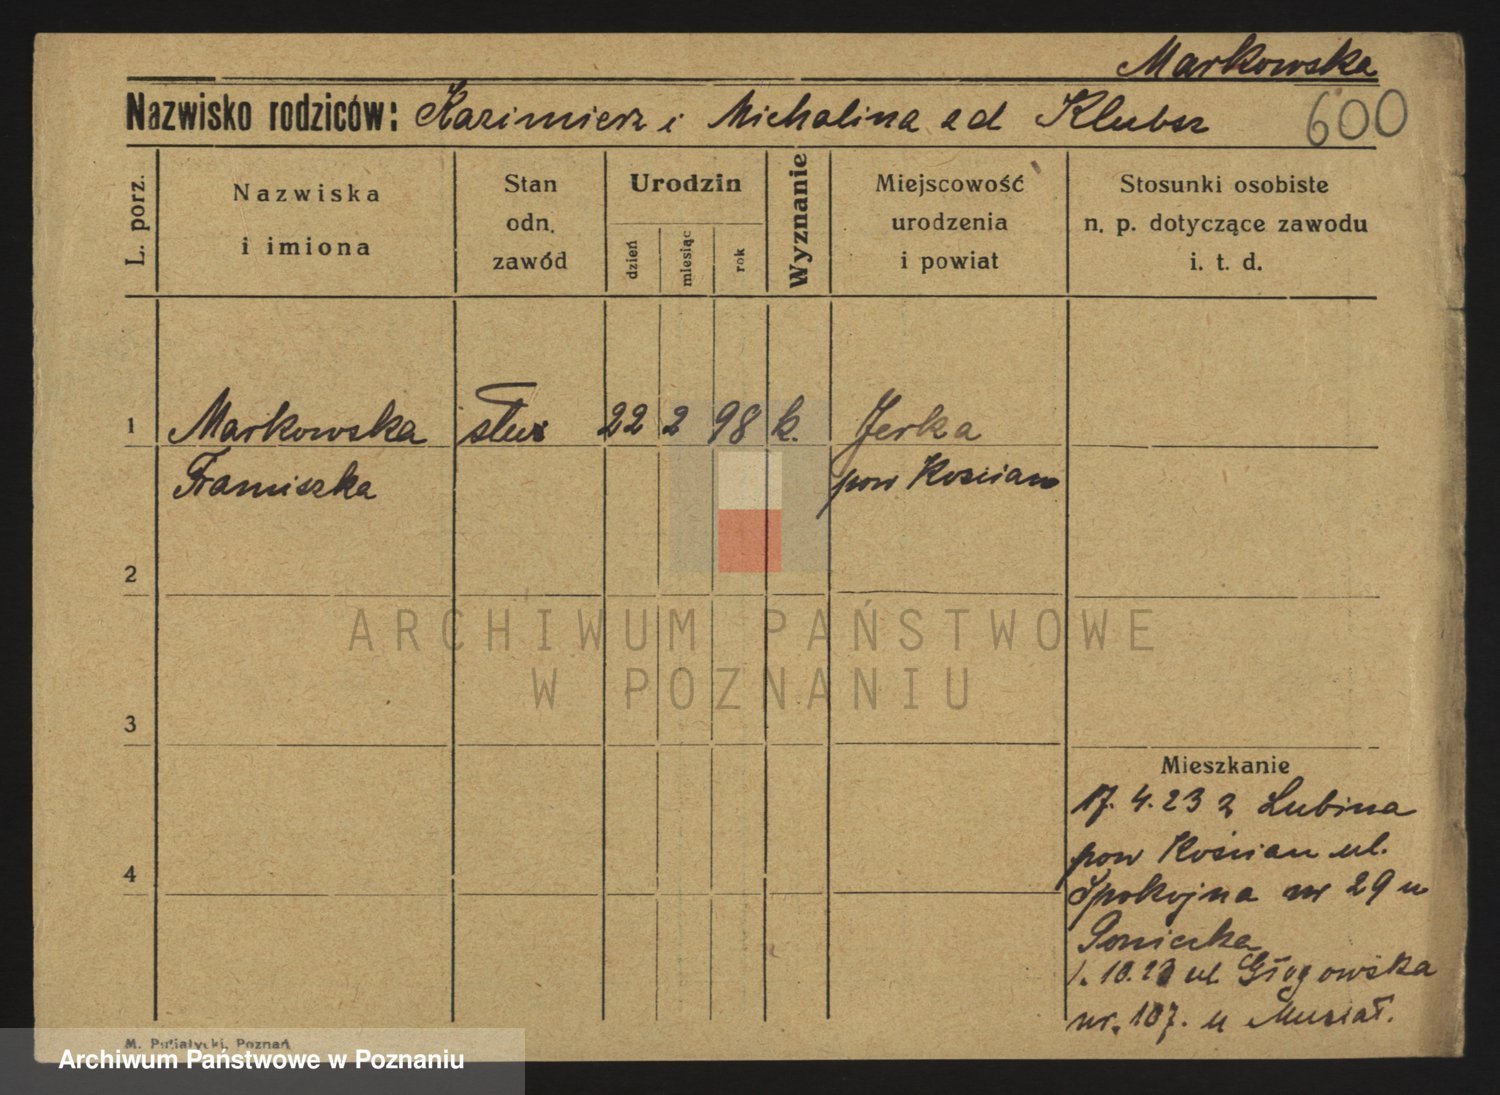 Markowska
Nazwisko rodziców: Kazimierz i Michalina z d Klubsz
600
L. porz.
Nazwiska
i imiona
Stan
odn.
zawód
Urodzin
dzień
miesiąc
rok
Wyznanie
Miejscowość
urodzenia
i powiat
Stosunki osobiste
n. p. dotyczące zawodu
i. t. d.
1 Markowska służ 22 2 98 k. Jerka
Franciszka pow Kościan
2
ARCHIWUM PAŃSTWOWE
W POZNANIU
3
Mieszkanie
17. 4. 23 z Lubina
pow Kościan ul.
4
Spokojna nr 29 u
1. 10. ul Głogowska
nr. 107. u Musiał.
M. Putiatycki, Poznań
Archiwum Państwowe w Poznaniu